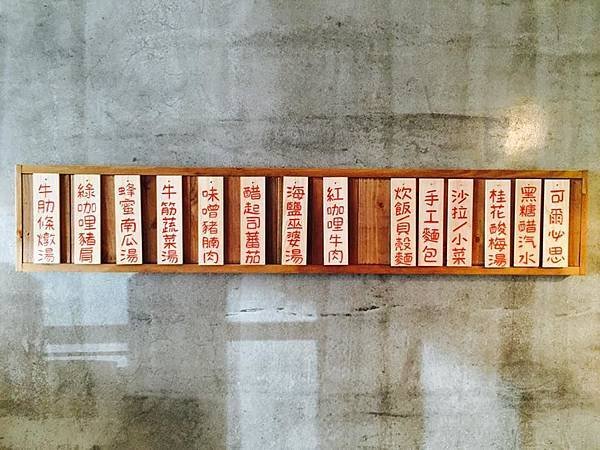 可爾必思
黑糖醋汽水
桂花酸梅湯
沙拉/小菜
手工麵包
炊飯貝殼麵
紅咖哩牛肉
海鹽巫婆湯
醋起司蕃茄
味噌豬腩肉
牛筋蔬菜湯
蜂蜜南瓜湯
綠咖哩豬肩
牛肋條燉湯